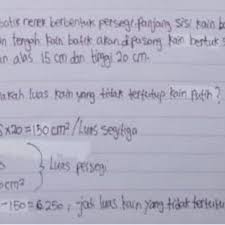 batik rerek berbentuk persegi. Panjang sisi kain b
n tengah kain batik akan dipasang kain bentuk s
an alas 15 cm dan tinggi 20 cm.
akah luas kain yang tidak tertutup kain putih?
5 x 20 = 150 cm² / Luas segitiga
Luas persegi
0 cm²
- 150 = 6250, jadi luas kain yang tidak tertutu